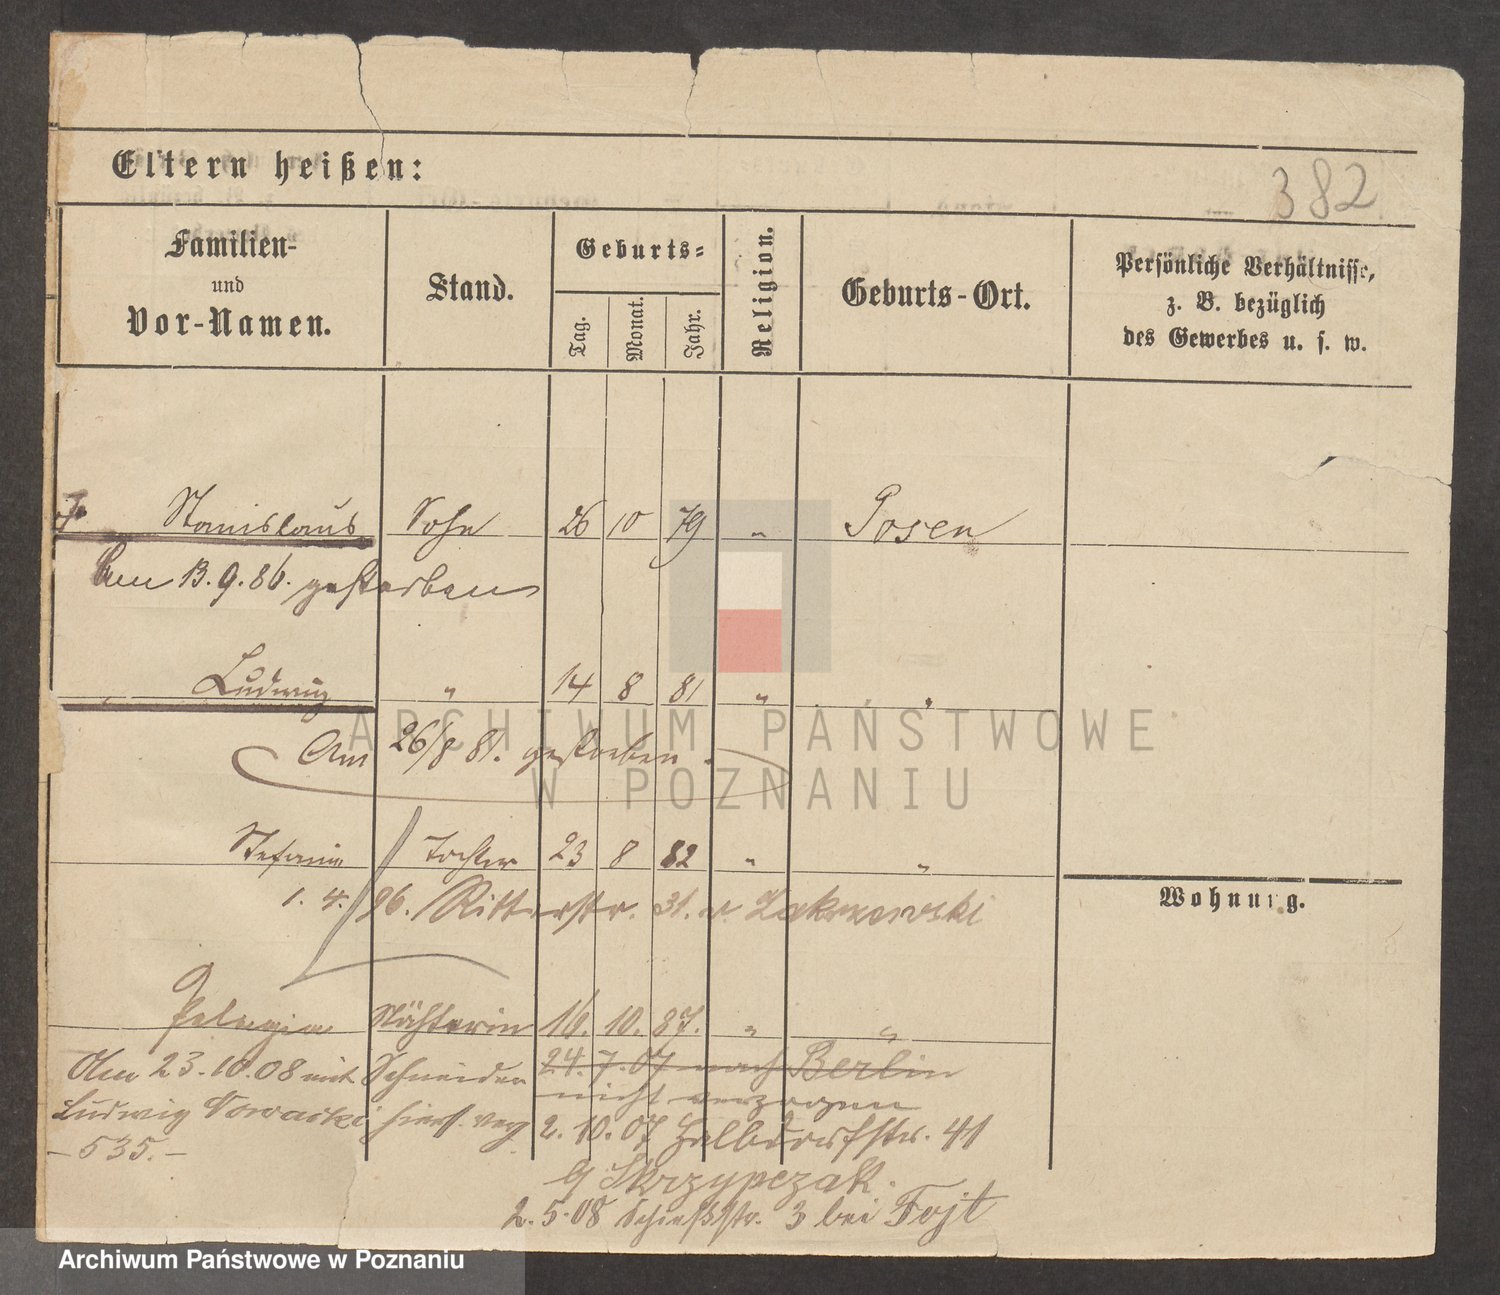 Eltern heißen:
382
Familien- und Vor-Namen.
Stand.
Geburts-
Tag.
Monat.
Jahr.
Religion.
Geburts-Ort.
Persönliche Verhältnisse,
z. B. bezüglich
des Gewerbes u. s. w.
Stanislaus Sohn 26 10 79 " Posen
Am 13.9.86. gestorben
Ludwig " 14 8 81 " "
Am 26/8 81. gestorben.
Stefania Tochter 23 8 82 " "
1. 4. 96. Ritterstr. 31. Zakrzewski
Wohnung.
Pelagia Nähterin 16. 10. 87. " "
Am 23.10.08 mit Schneider 24.7.07 nach Berlin
nicht verzogen
Ludwig Nowacki hier 2.10.07 Halbdorfstr. 41
-535.-
Skrzypczak.
2.5.08 Schießstr. 3 bei Fojt
ARCHIWUM PAŃSTWOWE
W POZNANIU
Archiwum Państwowe w Poznaniu